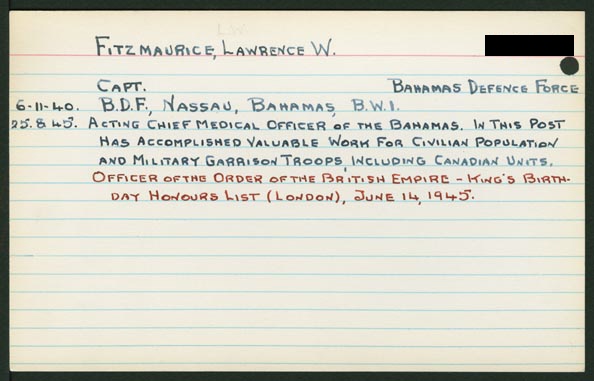 L.W.
FITZMAURICE, LAWRENCE W.
CAPT. BAHAMAS DEFENCE FORCE
6-11-40. B.D.F., NASSAU, BAHAMAS, B.W.I.
25.8.45. ACTING CHIEF MEDICAL OFFICER OF THE BAHAMAS. IN THIS POST
HAS ACCOMPLISHED VALUABLE WORK FOR CIVILIAN POPULATION
AND MILITARY GARRISON TROOPS, INCLUDING CANADIAN UNITS.
OFFICER OF THE ORDER OF THE BRITISH EMPIRE - KING'S BIRTH-
DAY HONOURS LIST (LONDON), JUNE 14, 1945.